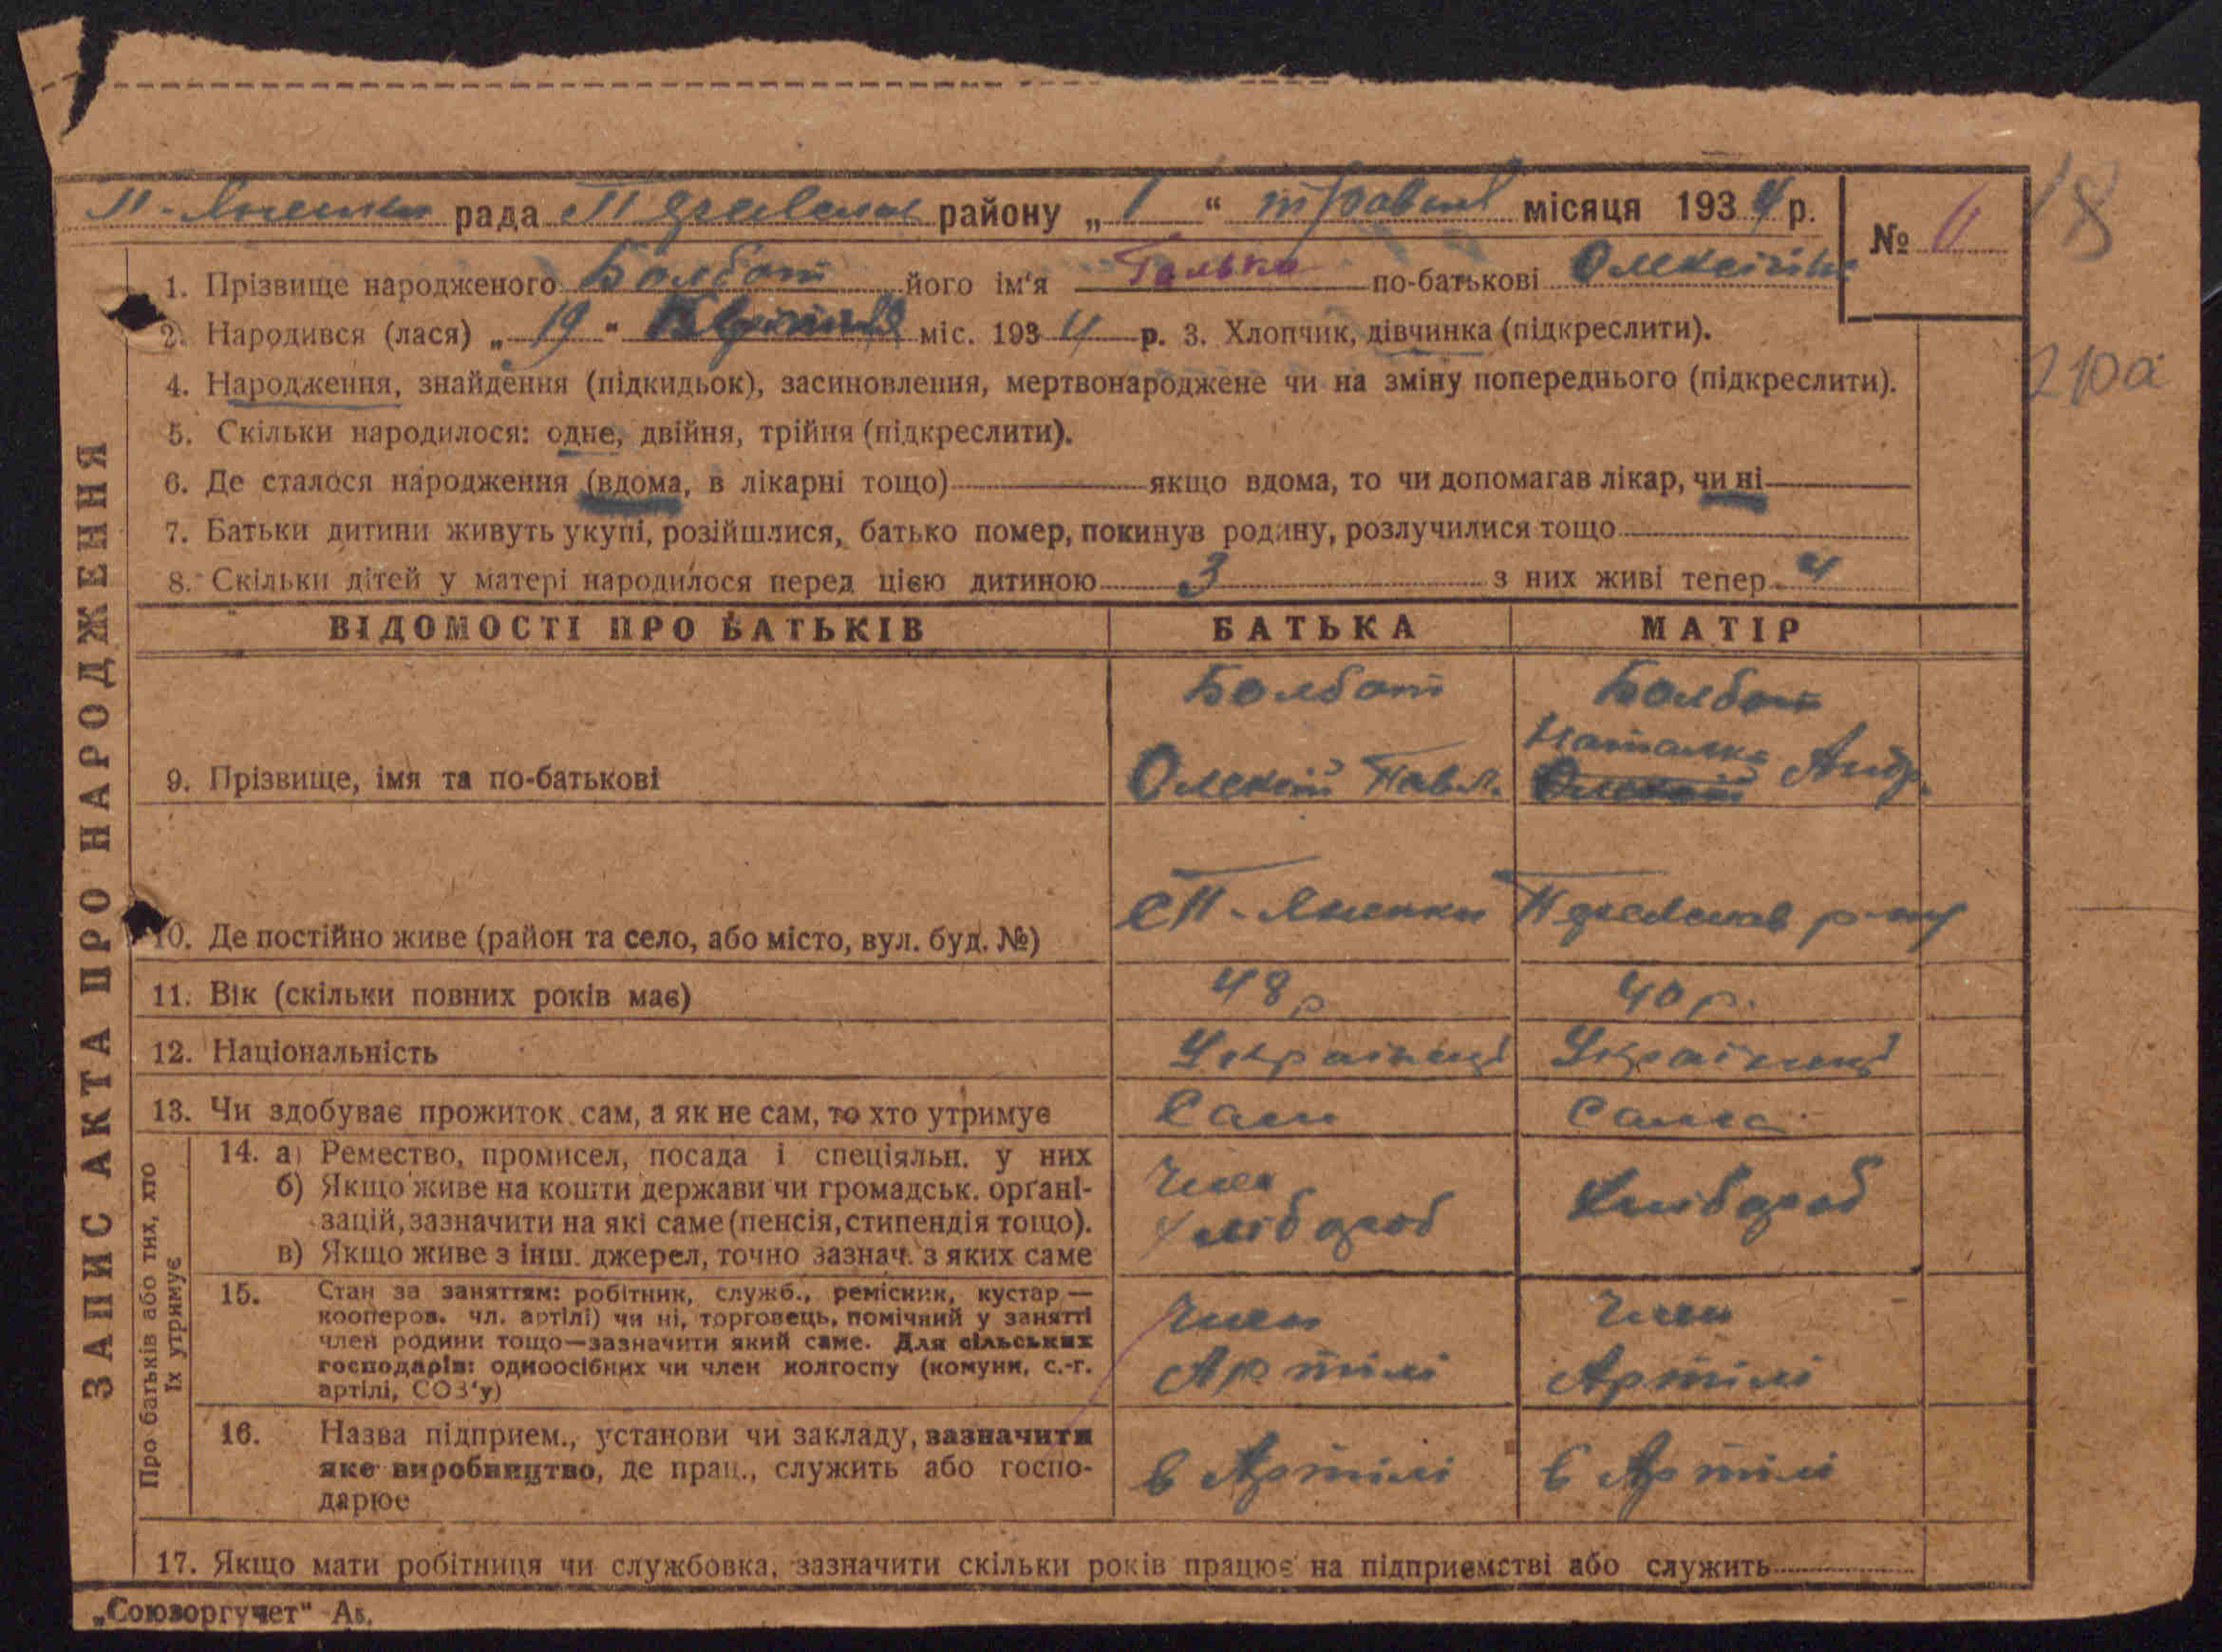 рада району „ 1 “ травня місяця 1934 р.
№ 6
18
1. Прізвище народженого Болбат його ім'я Галька по-батькові Олексіївн
2. Народився (лася) „ 19 “ Квітня міс. 1934 р. 3. Хлопчик, дівчинка (підкреслити).
210а
4. Народження, знайдення (підкидьок), засиновлення, мертвонароджене чи на зміну попереднього (підкреслити).
5. Скільки народилося: одне, двійня, трійня (підкреслити).
6. Де сталося народження (вдома, в лікарні тощо) якщо вдома, то чи допомагав лікар, чи ні
7. Батьки дитини живуть укупі, розійшлися, батько помер, покинув родину, розлучилися тощо
8. Скільки дітей у матері народилося перед цією дитиною 3 з них живі тепер 4
ЗАПИС АКТА ПРО НАРОДЖЕННЯ
ВІДОМОСТІ ПРО БАТЬКІВ БАТЬКА МАТІР
Болбат Болбат
Наталка
9. Прізвище, імя та по-батькові Олексій Павл. Олексій Андр.
10. Де постійно живе (район та село, або місто, вул. буд. №) р-ну
11. Вік (скільки повних років має) 48 р 40 р.
12. Національність Українці Українці
13. Чи здобуває прожиток сам, а як не сам, то хто утримує Сам Сама
Про батьків або тих, хто
їх утримує
14. а) Ремество, промисел, посада і спеціяльн. у них
б) Якщо живе на кошти держави чи громадськ. орґані-
зацій, зазначити на які саме (пенсія, стипендія тощо).
в) Якщо живе з інш. джерел, точно зазнач. з яких саме
Член
Хлібороб Хлібороб
15. Стан за заняттям: робітник, служб., ремісник, кустар—
кооперов. чл. артілі) чи ні, торговець, помічний у занятті
член родини тощо—зазначити який саме. Для сільських
господарів: одноосібних чи член колгоспу (комуни, с.-г.
артілі, СОЗ'у)
Член Член
Артілі Артілі
16. Назва підприєм., установи чи закладу, зазначити
яке виробництво, де прац., служить або госпо-
дарює
в Артілі в Артілі
17. Якщо мати робітниця чи службовка, зазначити скільки років працює на підприємстві або служить
„Союзоргучет“ А5.